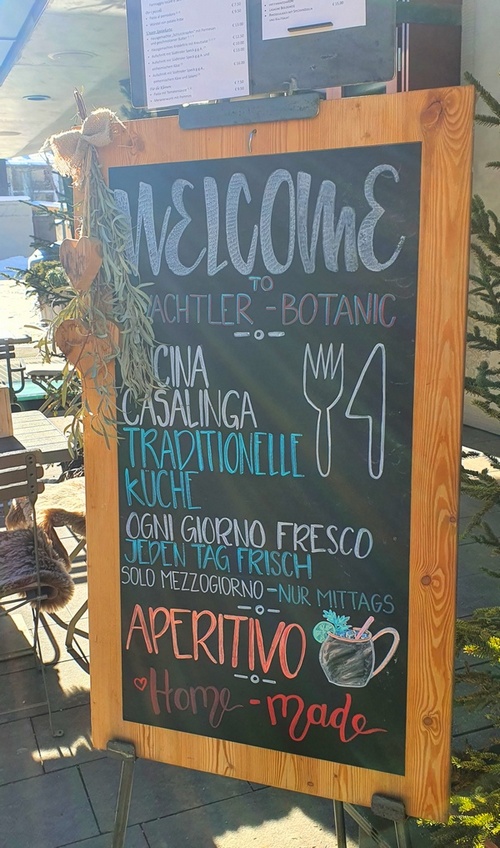 WELCOME
TO
ACHTLER - BOTANIC
CINA
CASALINGA
TRADITIONELLE
KÜCHE
OGNI GIORNO FRESCO
JEDEN TAG FRISCH
SOLO MEZZOGIORNO - NUR MITTAGS
APERITIVO
Home - made